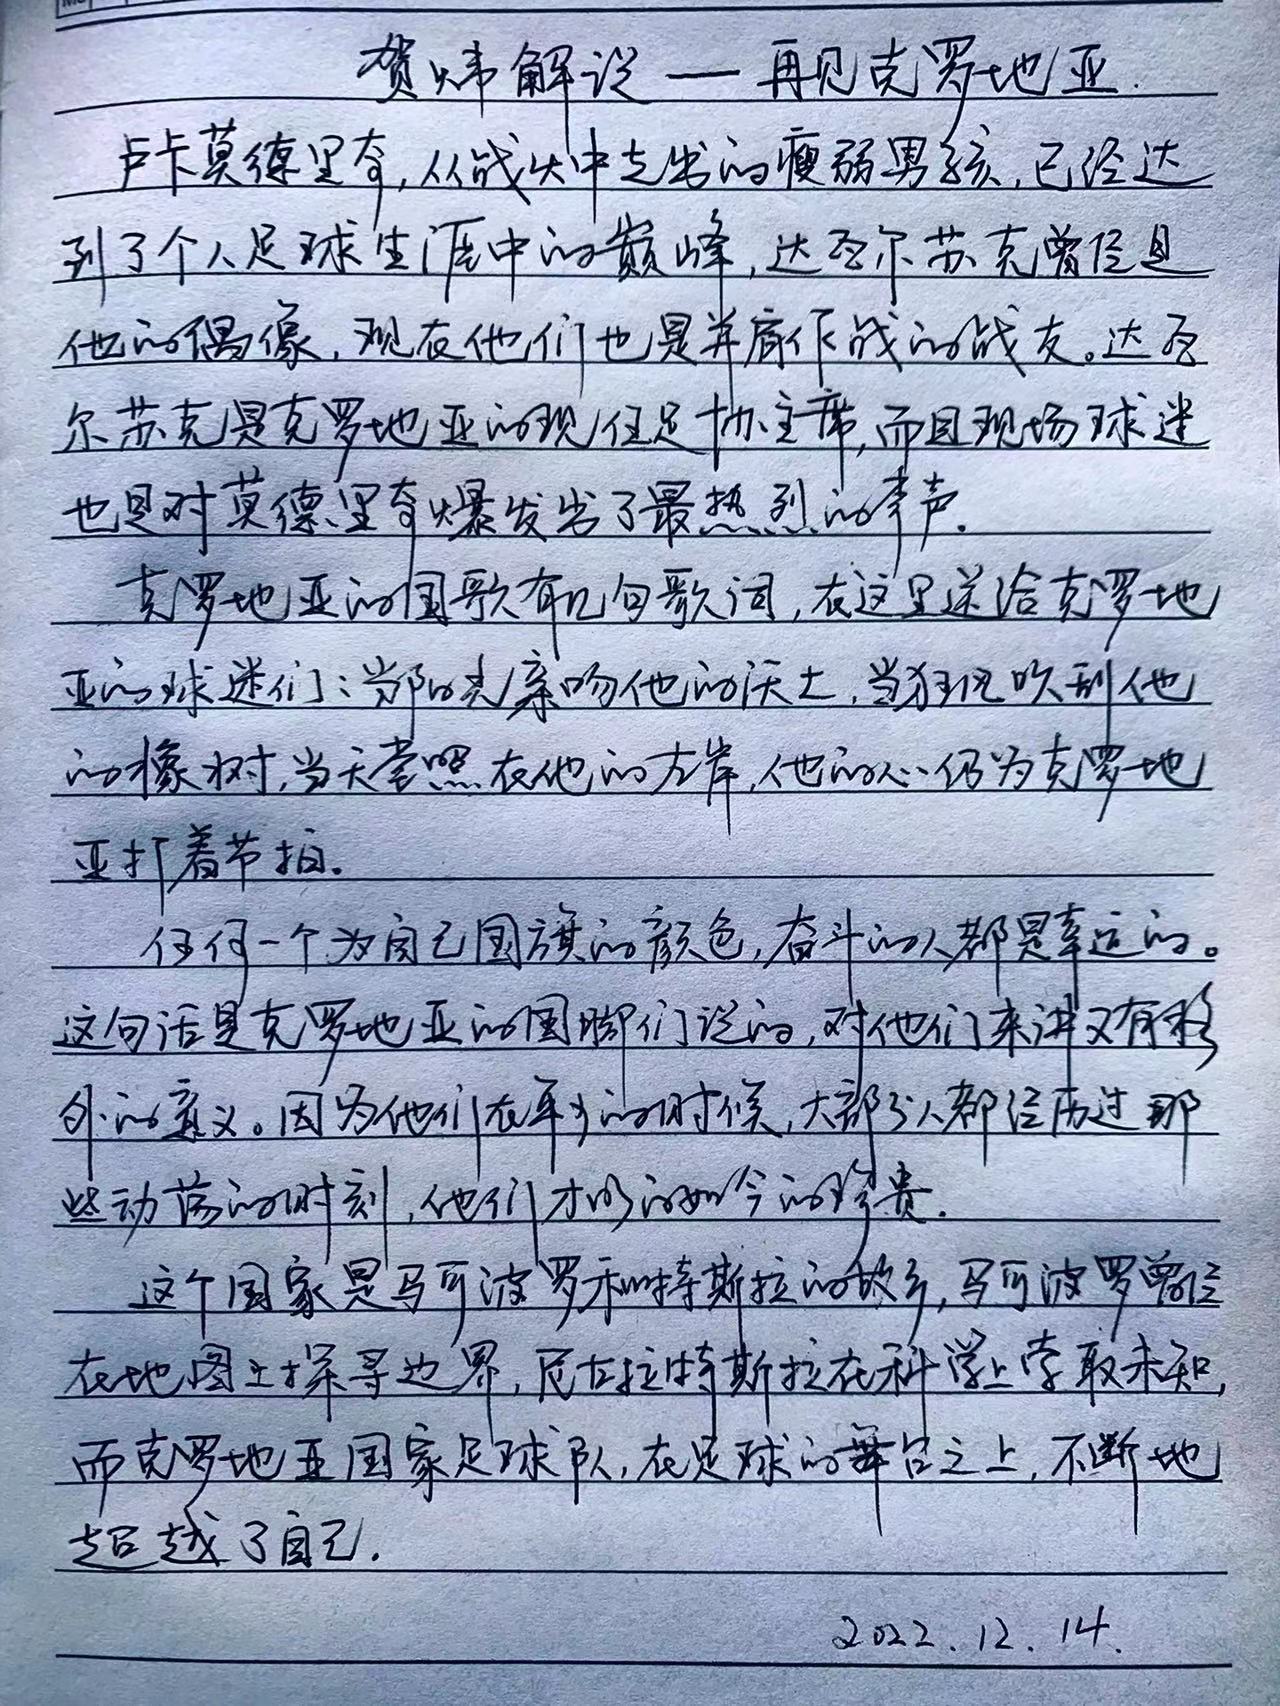 贺炜解说——再见克罗地亚.
卢卡莫德里奇,从战火中走出的瘦弱男孩,已经达
到了个人足球生涯中的巅峰,达沃尔苏克曾经是
他的偶像,现在他们也是并肩作战的战友。达沃
尔苏克是克罗地亚的现任足协主席,而且现场球迷
也是对莫德里奇爆发出了最热烈的掌声.
克罗地亚的国歌有几句歌词,在这里送给克罗地
亚的球迷们:当阳光亲吻他的沃土,当狂风吹到他
的橡树,当天堂照在他的左岸,他的心仍为克罗地
亚打着节拍.
任何一个为自己国旗的颜色,奋斗的人都是幸运的。
这句话是克罗地亚的国脚们说的,对他们来讲又有格
外的意义。因为他们在年少的时候,大部分人都经历过那
些动荡的时刻,他们才明的如今的珍贵.
这个国家是马可波罗和特斯拉的故乡,马可波罗曾经
在地图上探寻边界,尼古拉特斯拉在科学上掌取未知,
而克罗地亚国家足球队,在足球的舞台之上,不断地
超越了自己.
2022.12.14.